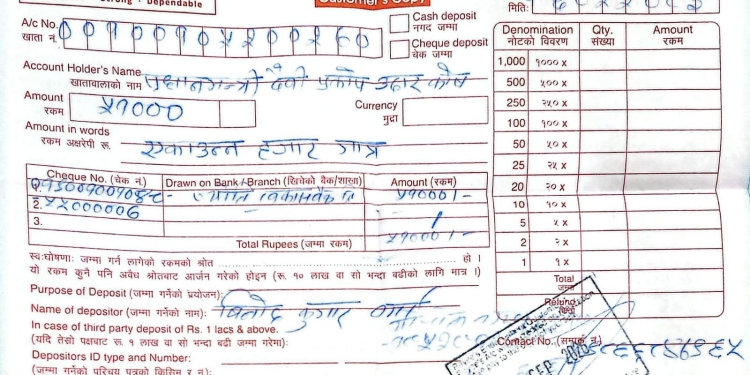 Dependable
Customer's Copy
मिति:
A/c No.
खाता नं.
Cash deposit
नगद जम्मा
Cheque deposit
चेक जम्मा
Account Holder's Name
खातावालाको नाम प्रधानमन्त्री दैवी प्रकोप उद्धार कोष
Amount
रकम ५१०००
Currency
मुद्रा
Amount in words
रकम अक्षरेपी रू. एकाउन्न हजार मात्र
Cheque No. (चेक नं.) Drawn on Bank /Branch (खिचेको बैंक/शाखा) Amount (रकम)
५१०००।-
2.
3.
Total Rupees (जम्मा रकम) ५१०००।-
स्व:घोषणा: जम्मा गर्न लागेको रकमको श्रोत हो ।
यो रकम कुनै पनि अवैध श्रोतबाट आर्जन गरेको होइन (रू. १० लाख वा सो भन्दा बढीको लागि मात्र ।)
Purpose of Deposit (जम्मा गर्नेको प्रयोजन):
Name of depositor (जम्मा गर्नेको नाम): विनोद कुमार
In case of third party deposit of Rs. 1 lacs & above.
(यदि तेस्रो पक्षबाट रू. १ लाख वा सो भन्दा बढी जम्मा गरेमा):
Depositors ID type and Number:
(जम्मा गर्नेको परिचय पत्रको किसिम र नं):
Denomination
नोटको विवरण
Qty.
संख्या
Amount
रकम
1,000 १००० x
500 ५०० x
250 २५० x
100 १०० x
50 ५० x
25 २५ x
20 २० x
10 १० x
5 ५ x
2 २ x
1 १ x
Total
जम्मा
Refund
फिर्ता
Contact No. (सम्पर्क नं.)
SEP 2020